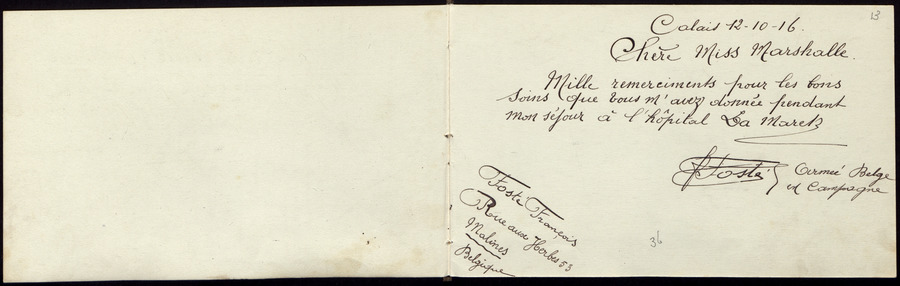 13
Calais 12-10-16.
Chère Miss Marshalle.
Mille remerciments pour les bons
soins que vous m'avez donnée pendant
mon séjour à l'hôpital La Marck
Fosté
Armée Belge
en Campagne
Fosté François
Rue aux Herbes 53
Malines
Belgique
36